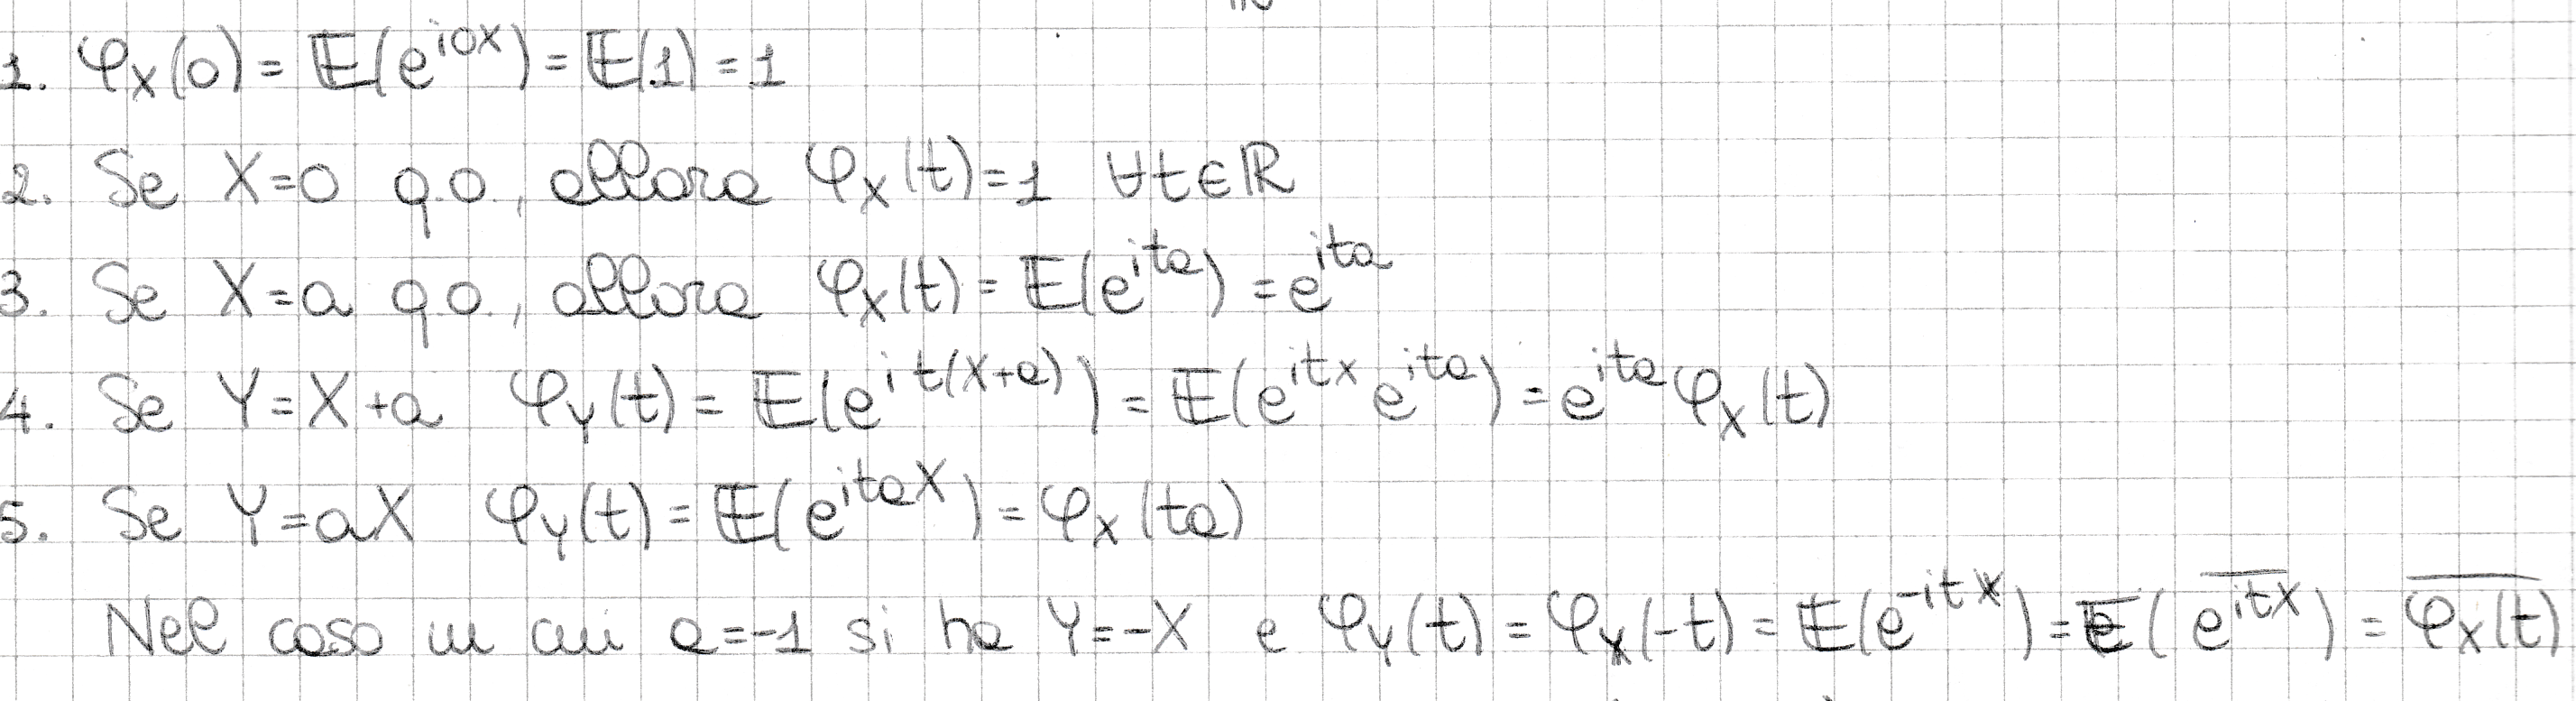 1. φ_X(0) = 𝔼(e^{i0X}) = 𝔼(1) = 1
2. Se X=0 q.o., allora φ_X(t)=1 ∀t∈ℝ
3. Se X=a q.o., allora φ_X(t) = 𝔼(e^{ita}) = e^{ita}
4. Se Y=X+a φ_Y(t) = 𝔼(e^{it(X+a)}) = 𝔼(e^{itX} e^{ita}) = e^{ita} φ_X(t)
5. Se Y=aX φ_Y(t) = 𝔼(e^{itaX}) = φ_X(ta)
Nel caso in cui a=-1 si ha Y=-X e φ_Y(t) = φ_X(-t) = 𝔼(e^{-itX}) = 𝔼(\overline{e^{itX}}) = \overline{φ_X(t)}